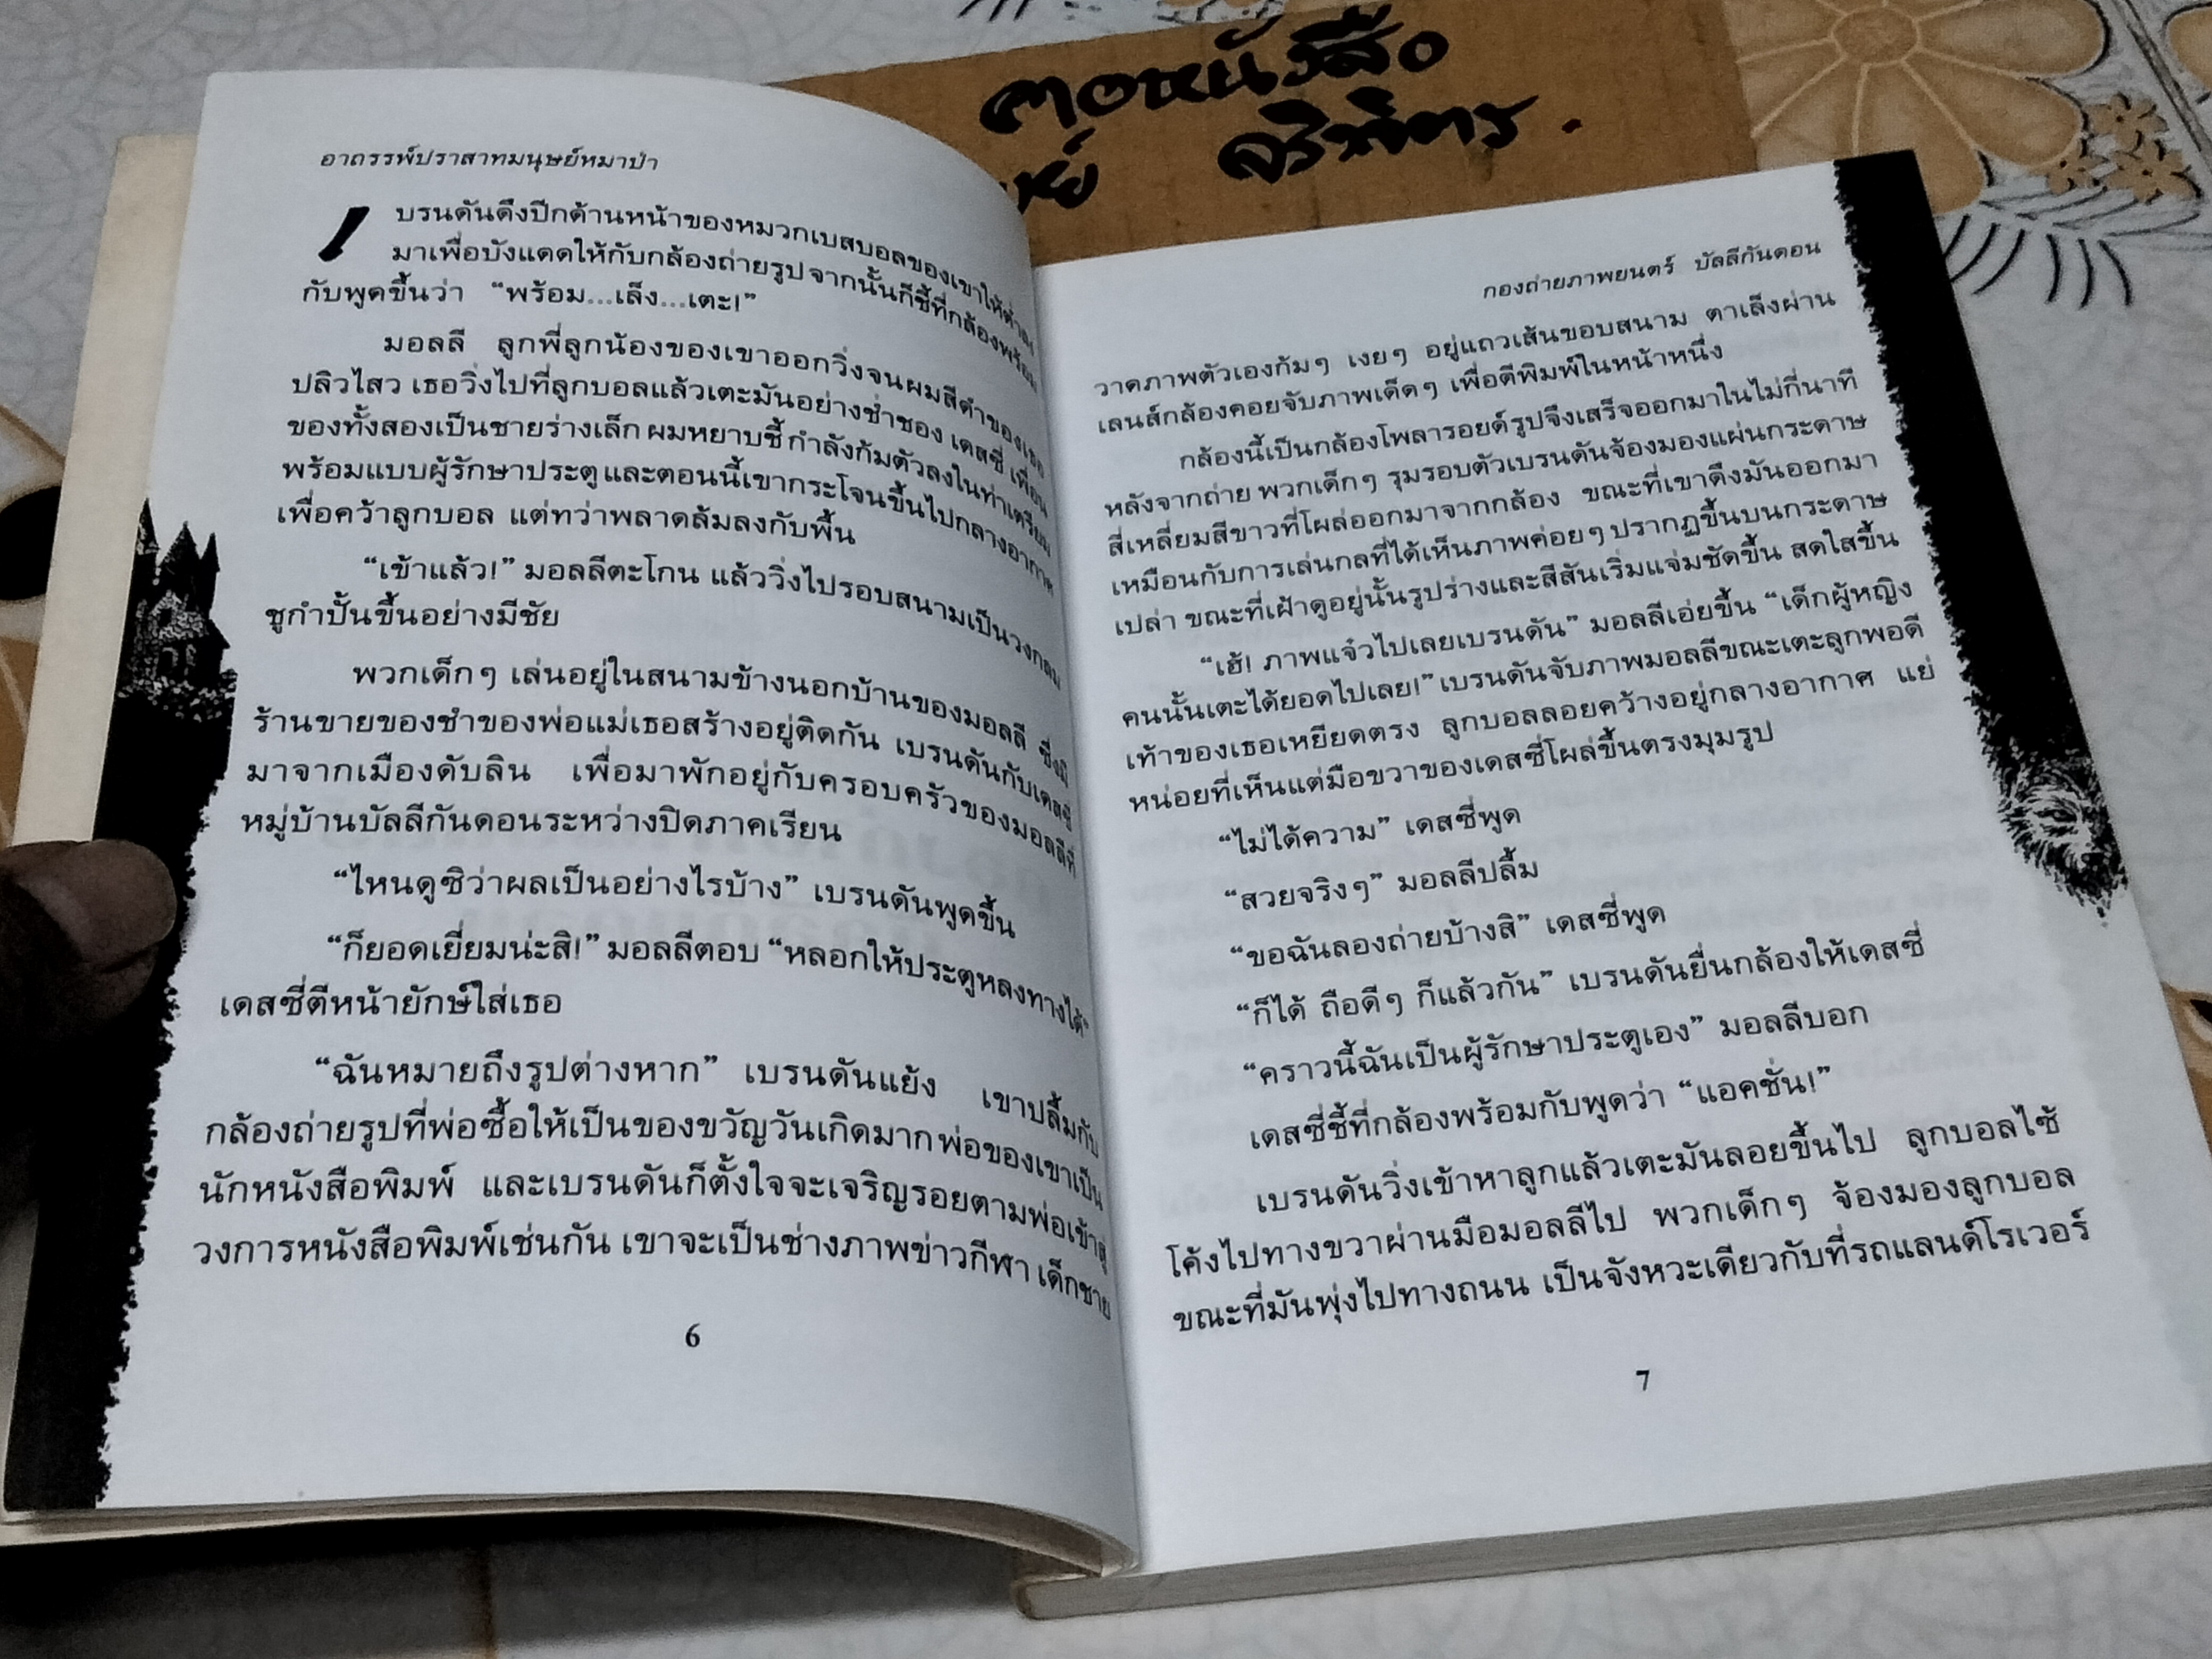 คอหนังสือ
จริพัตร.
อาถรรพ์ปราสาทมนุษย์หมาป่า
เบรนดันดึงปีกด้านหน้าของหมวกเบสบอลของเขาให้ต่ำลง
มาเพื่อบังแดดให้กับกล้องถ่ายรูป จากนั้นก็ชี้ที่กล้องพร้อม
กับพูดขึ้นว่า “พร้อม...เล็ง...เตะ!”
มอลลี ลูกพี่ลูกน้องของเขาออกวิ่งจนผมสีดำของเธอ
ปลิวไสว เธอวิ่งไปที่ลูกบอลแล้วเตะมันอย่างช่ำชอง เดสซี่ เพื่อน
ของทั้งสองเป็นชายร่างเล็ก ผมหยาบชี้ กำลังก้มตัวลงในท่าเตรียม
พร้อมแบบผู้รักษาประตู และตอนนี้เขากระโจนขึ้นไปกลางอากาศ
เพื่อคว้าลูกบอล แต่ทว่าพลาดล้มลงกับพื้น
“เข้าแล้ว!” มอลลีตะโกน แล้ววิ่งไปรอบสนามเป็นวงกลม
ชูกำปั้นขึ้นอย่างมีชัย
พวกเด็กๆ เล่นอยู่ในสนามข้างนอกบ้านของมอลลี ซึ่งมี
ร้านขายของชำของพ่อแม่เธอสร้างอยู่ติดกัน เบรนดันกับเดสซี่
มาจากเมืองดับลิน เพื่อมาพักอยู่กับครอบครัวของมอลลีที่
หมู่บ้านบัลลีกันดอนระหว่างปิดภาคเรียน
“ไหนดูซิว่าผลเป็นอย่างไรบ้าง” เบรนดันพูดขึ้น
“ก็ยอดเยี่ยมน่ะสิ!” มอลลีตอบ “หลอกให้ประตูหลงทางได้”
เดสซี่ตีหน้ายักษ์ใส่เธอ
“ฉันหมายถึงรูปต่างหาก” เบรนดันแย้ง เขาปลื้มกับ
กล้องถ่ายรูปที่พ่อซื้อให้เป็นของขวัญวันเกิดมาก พ่อของเขาเป็น
นักหนังสือพิมพ์ และเบรนดันก็ตั้งใจจะเจริญรอยตามพ่อเข้าสู่
วงการหนังสือพิมพ์เช่นกัน เขาจะเป็นช่างภาพข่าวกีฬา เด็กชาย
6
กองถ่ายภาพยนตร์ บัลลีกันดอน
วาดภาพตัวเองก้มๆ เงยๆ อยู่แถวเส้นขอบสนาม ตาเล็งผ่าน
เลนส์กล้องคอยจับภาพเด็ดๆ เพื่อตีพิมพ์ในหน้าหนึ่ง
กล้องนี้เป็นกล้องโพลารอยด์ รูปจึงเสร็จออกมาในไม่กี่นาที
หลังจากถ่าย พวกเด็กๆ รุมรอบตัวเบรนดันจ้องมองแผ่นกระดาษ
สี่เหลี่ยมสีขาวที่โผล่ออกมาจากกล้อง ขณะที่เขาดึงมันออกมา
เหมือนกับการเล่นกลที่ได้เห็นภาพค่อยๆ ปรากฏขึ้นบนกระดาษ
เปล่า ขณะที่เฝ้าดูอยู่นั้นรูปร่างและสีสันเริ่มแจ่มชัดขึ้น สดใสขึ้น
“เฮ้! ภาพแจ๋วไปเลยเบรนดัน” มอลลีเอ่ยขึ้น “เด็กผู้หญิง
คนนั้นเตะได้ยอดไปเลย!” เบรนดันจับภาพมอลลีขณะเตะลูกพอดี
เท้าของเธอเหยียดตรง ลูกบอลลอยคว้างอยู่กลางอากาศ แย่
หน่อยที่เห็นแต่มือขวาของเดสซี่โผล่ขึ้นตรงมุมรูป
“ไม่ได้ความ” เดสซี่พูด
“สวยจริงๆ” มอลลีปลื้ม
“ขอฉันลองถ่ายบ้างสิ” เดสซี่พูด
“ก็ได้ ถือดีๆ ก็แล้วกัน” เบรนดันยื่นกล้องให้เดสซี่
“คราวนี้ฉันเป็นผู้รักษาประตูเอง” มอลลีบอก
เดสซี่ชี้ที่กล้องพร้อมกับพูดว่า “แอคชั่น!”
เบรนดันวิ่งเข้าหาลูกแล้วเตะมันลอยขึ้นไป ลูกบอลไซ้
โค้งไปทางขวาผ่านมือมอลลีไป พวกเด็กๆ จ้องมองลูกบอล
ขณะที่มันพุ่งไปทางถนน เป็นจังหวะเดียวกับที่รถแลนด์โรเวอร์
7